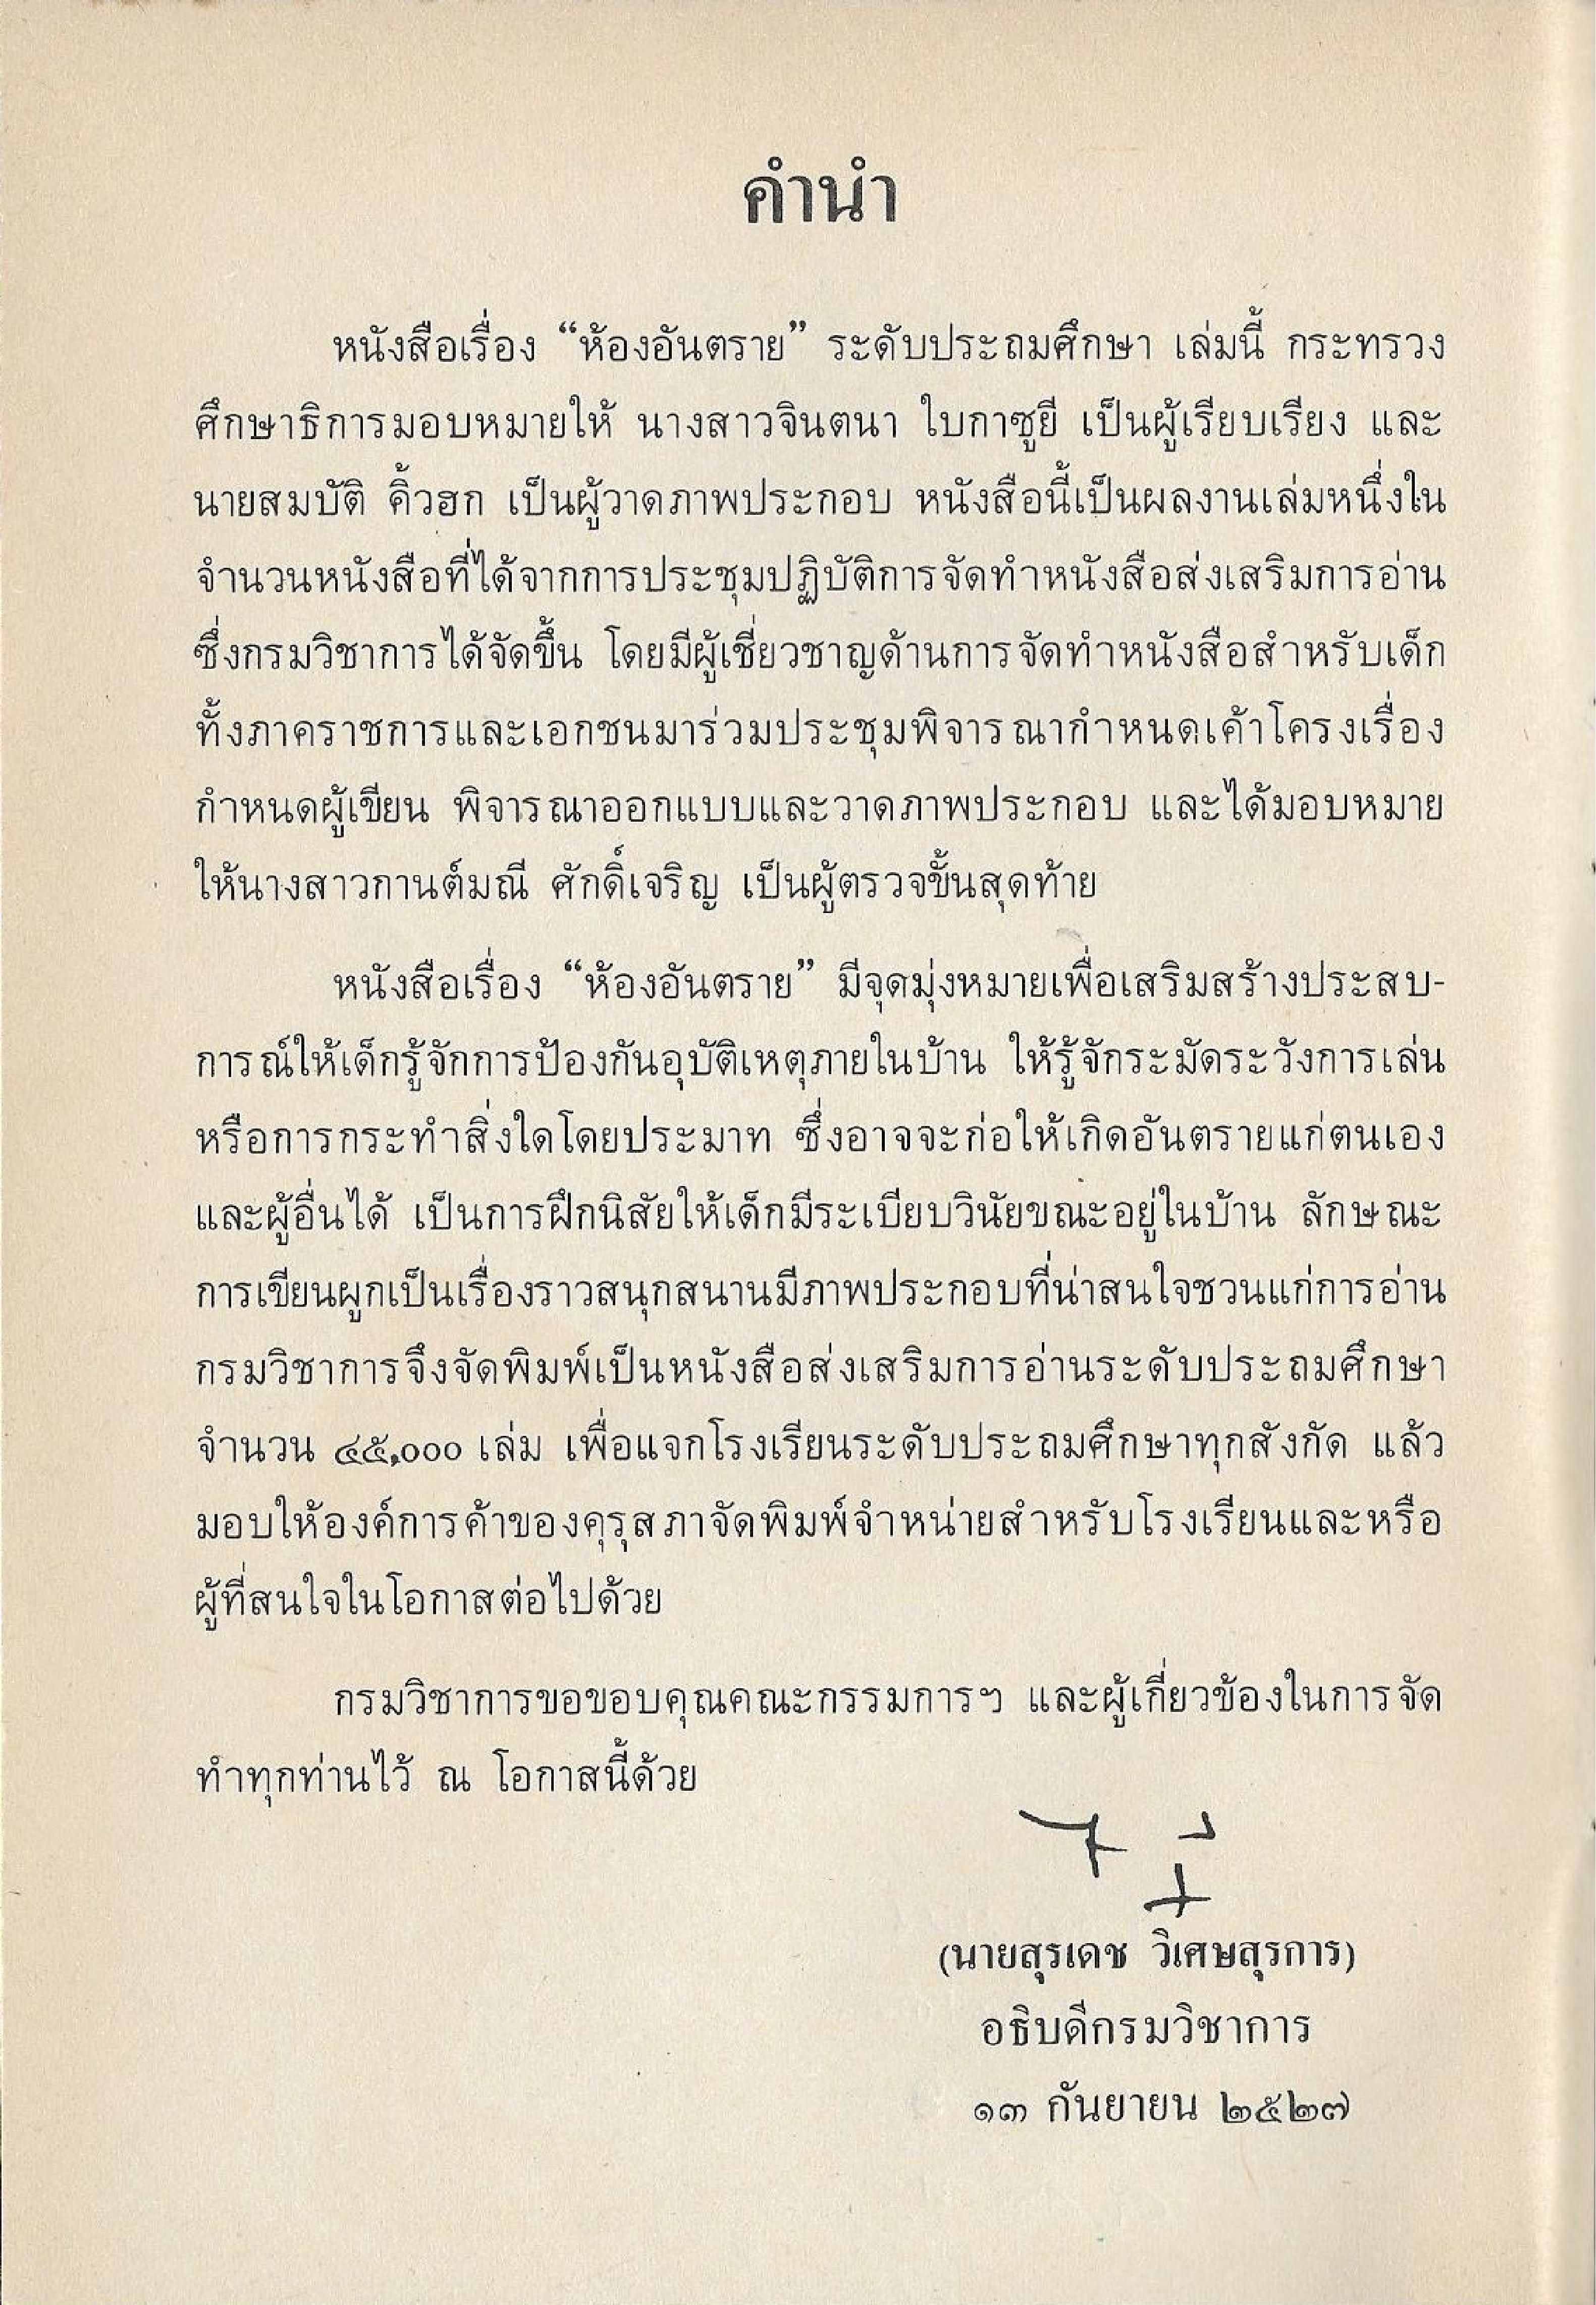 คำนำ
หนังสือเรื่อง “ห้องอันตราย” ระดับประถมศึกษา เล่มนี้ กระทรวง
ศึกษาธิการมอบหมายให้ นางสาวจินตนา ใบกาซูยี เป็นผู้เรียบเรียง และ
นายสมบัติ คิ้วฮก เป็นผู้วาดภาพประกอบ หนังสือนี้เป็นผลงานเล่มหนึ่งใน
จำนวนหนังสือที่ได้จากการประชุมปฏิบัติการจัดทำหนังสือส่งเสริมการอ่าน
ซึ่งกรมวิชาการได้จัดขึ้น โดยมีผู้เชี่ยวชาญด้านการจัดทำหนังสือสำหรับเด็ก
ทั้งภาคราชการและเอกชนมาร่วมประชุมพิจารณากำหนดเค้าโครงเรื่อง
กำหนดผู้เขียน พิจารณาออกแบบและวาดภาพประกอบ และได้มอบหมาย
ให้นางสาวกานต์มณี ศักดิ์เจริญ เป็นผู้ตรวจขั้นสุดท้าย
หนังสือเรื่อง “ห้องอันตราย” มีจุดมุ่งหมายเพื่อเสริมสร้างประสบ-
การณ์ให้เด็กรู้จักการป้องกันอุบัติเหตุภายในบ้าน ให้รู้จักระมัดระวังการเล่น
หรือการกระทำสิ่งใดโดยประมาท ซึ่งอาจจะก่อให้เกิดอันตรายแก่ตนเอง
และผู้อื่นได้ เป็นการฝึกนิสัยให้เด็กมีระเบียบวินัยขณะอยู่ในบ้าน ลักษณะ
การเขียนผูกเป็นเรื่องราวสนุกสนานมีภาพประกอบที่น่าสนใจชวนแก่การอ่าน
กรมวิชาการจึงจัดพิมพ์เป็นหนังสือส่งเสริมการอ่านระดับประถมศึกษา
จำนวน ๔๕,๐๐๐ เล่ม เพื่อแจกโรงเรียนระดับประถมศึกษาทุกสังกัด แล้ว
มอบให้องค์การค้าของคุรุสภาจัดพิมพ์จำหน่ายสำหรับโรงเรียนและหรือ
ผู้ที่สนใจในโอกาสต่อไปด้วย
กรมวิชาการขอขอบคุณคณะกรรมการฯ และผู้เกี่ยวข้องในการจัด
ทำทุกท่านไว้ ณ โอกาสนี้ด้วย
(นายสุรเดช วิเศษสุรการ)
อธิบดีกรมวิชาการ
๑๓ กันยายน ๒๕๒๗